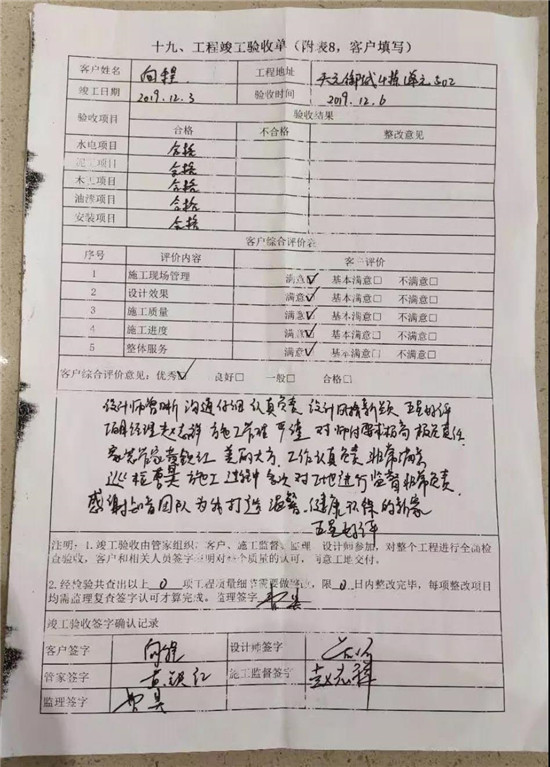 十九、工程竣工验收单（附表8，客户填写）
客户姓名 向程 工程地址 天元御城4栋 单元502
竣工日期 2019.12.3 验收时间 2019.12.6
验收项目 验收结果
合格 不合格 整改意见
水电项目 合格
泥工项目 合格
木工项目 合格
油漆项目 合格
安装项目 合格
客户综合评价表
序号 评价内容 客户评价
1 施工现场管理 满意☑ 基本满意□ 不满意□
2 设计效果 满意☑ 基本满意□ 不满意□
3 施工质量 满意☑ 基本满意□ 不满意□
4 施工进度 满意☑ 基本满意□ 不满意□
5 整体服务 满意☑ 基本满意□ 不满意□
客户综合评价意见：优秀☑ 良好□ 一般□ 合格□
设计师曾晰 沟通仔细 认真负责 设计风格新颖 五星好评
项目经理赵志祥 施工管理严谨 对师付要求极高 极负责任
管家黄铁红 美丽大方 工作认真负责 非常
巡检曹昊 施工过程中多次对工地进行监督 非常负责
感谢 团队为我打造温馨、健康环保的新家
五星好评
注明：1.竣工验收由管家组织，客户、施工监督、监理、设计师参加，对整个工程进行全面检
查验收，客户和相关人员签字证明对整个质量的认可，同意工地交付。
2.经检验共查出以上 0 项工程质量细节需要做整改，限 0 日内整改完毕，每项整改项目
均需监理复查签字认可才算完成。监理签字 曹昊
竣工验收签字确认记录
客户签字 向程 设计师签字
管家签字 黄铁红 施工监督签字 赵志祥
监理签字 曹昊